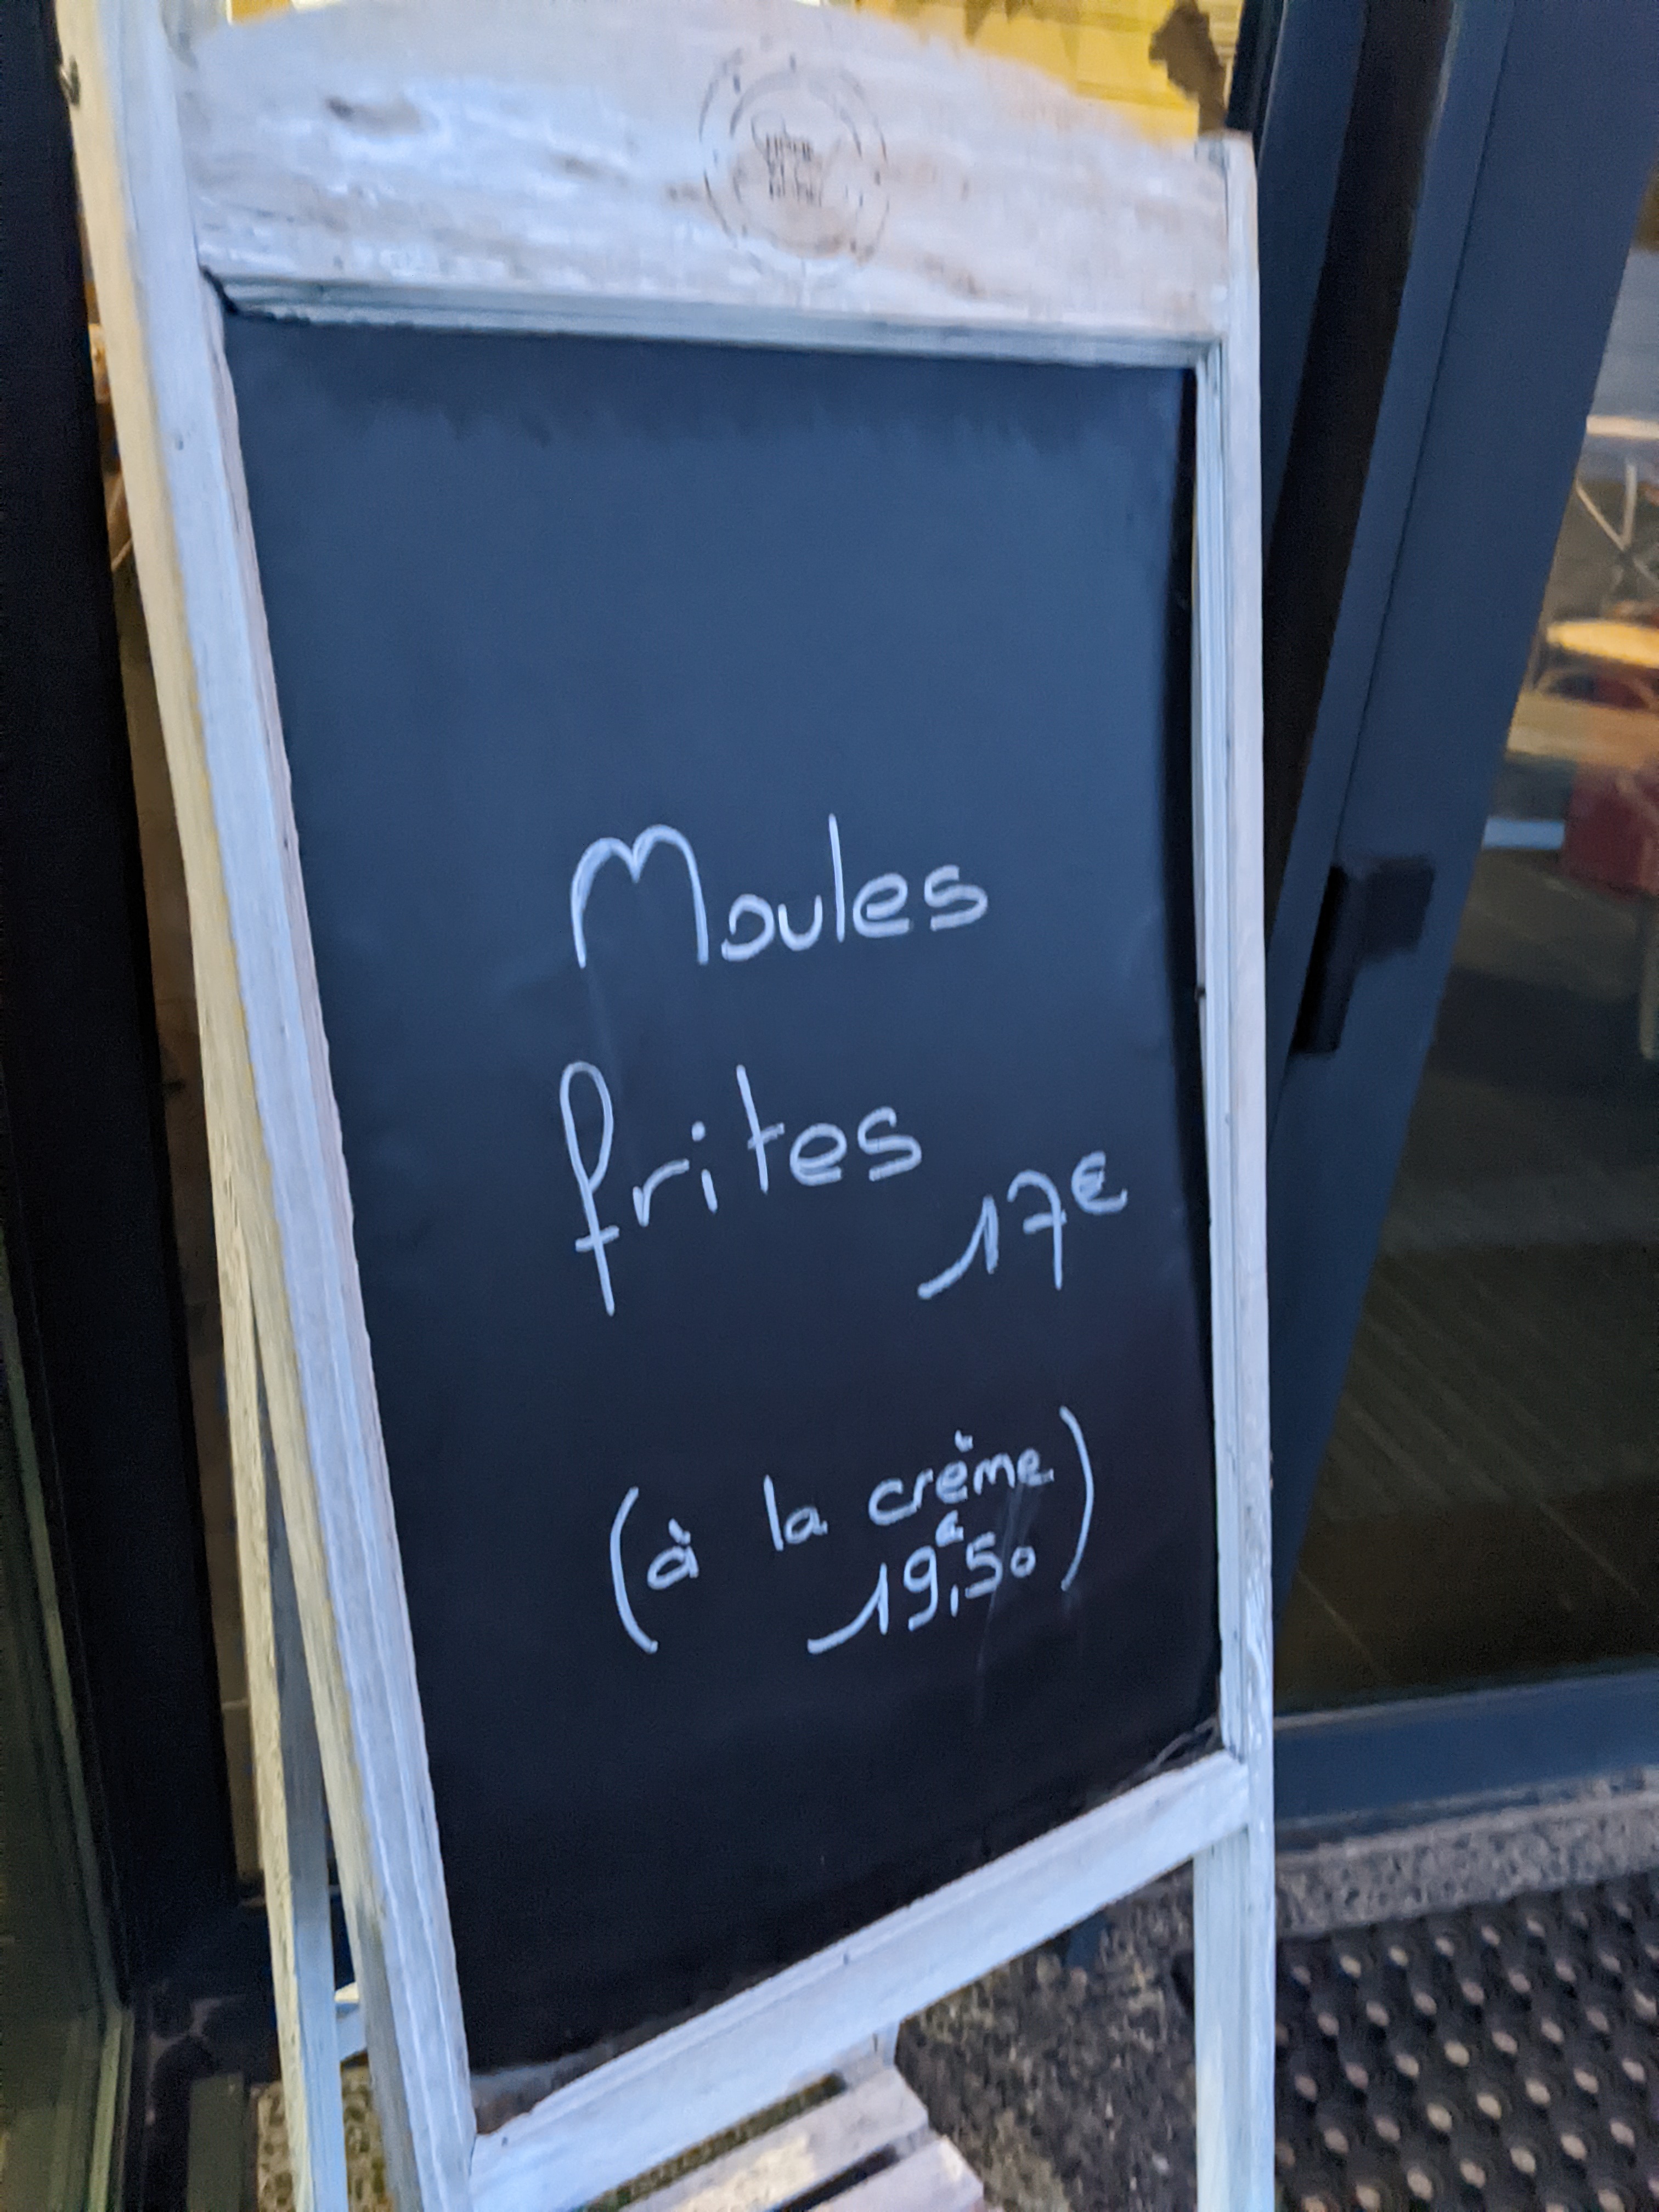 Moules
frites
17€
(à la crème
19€,50)